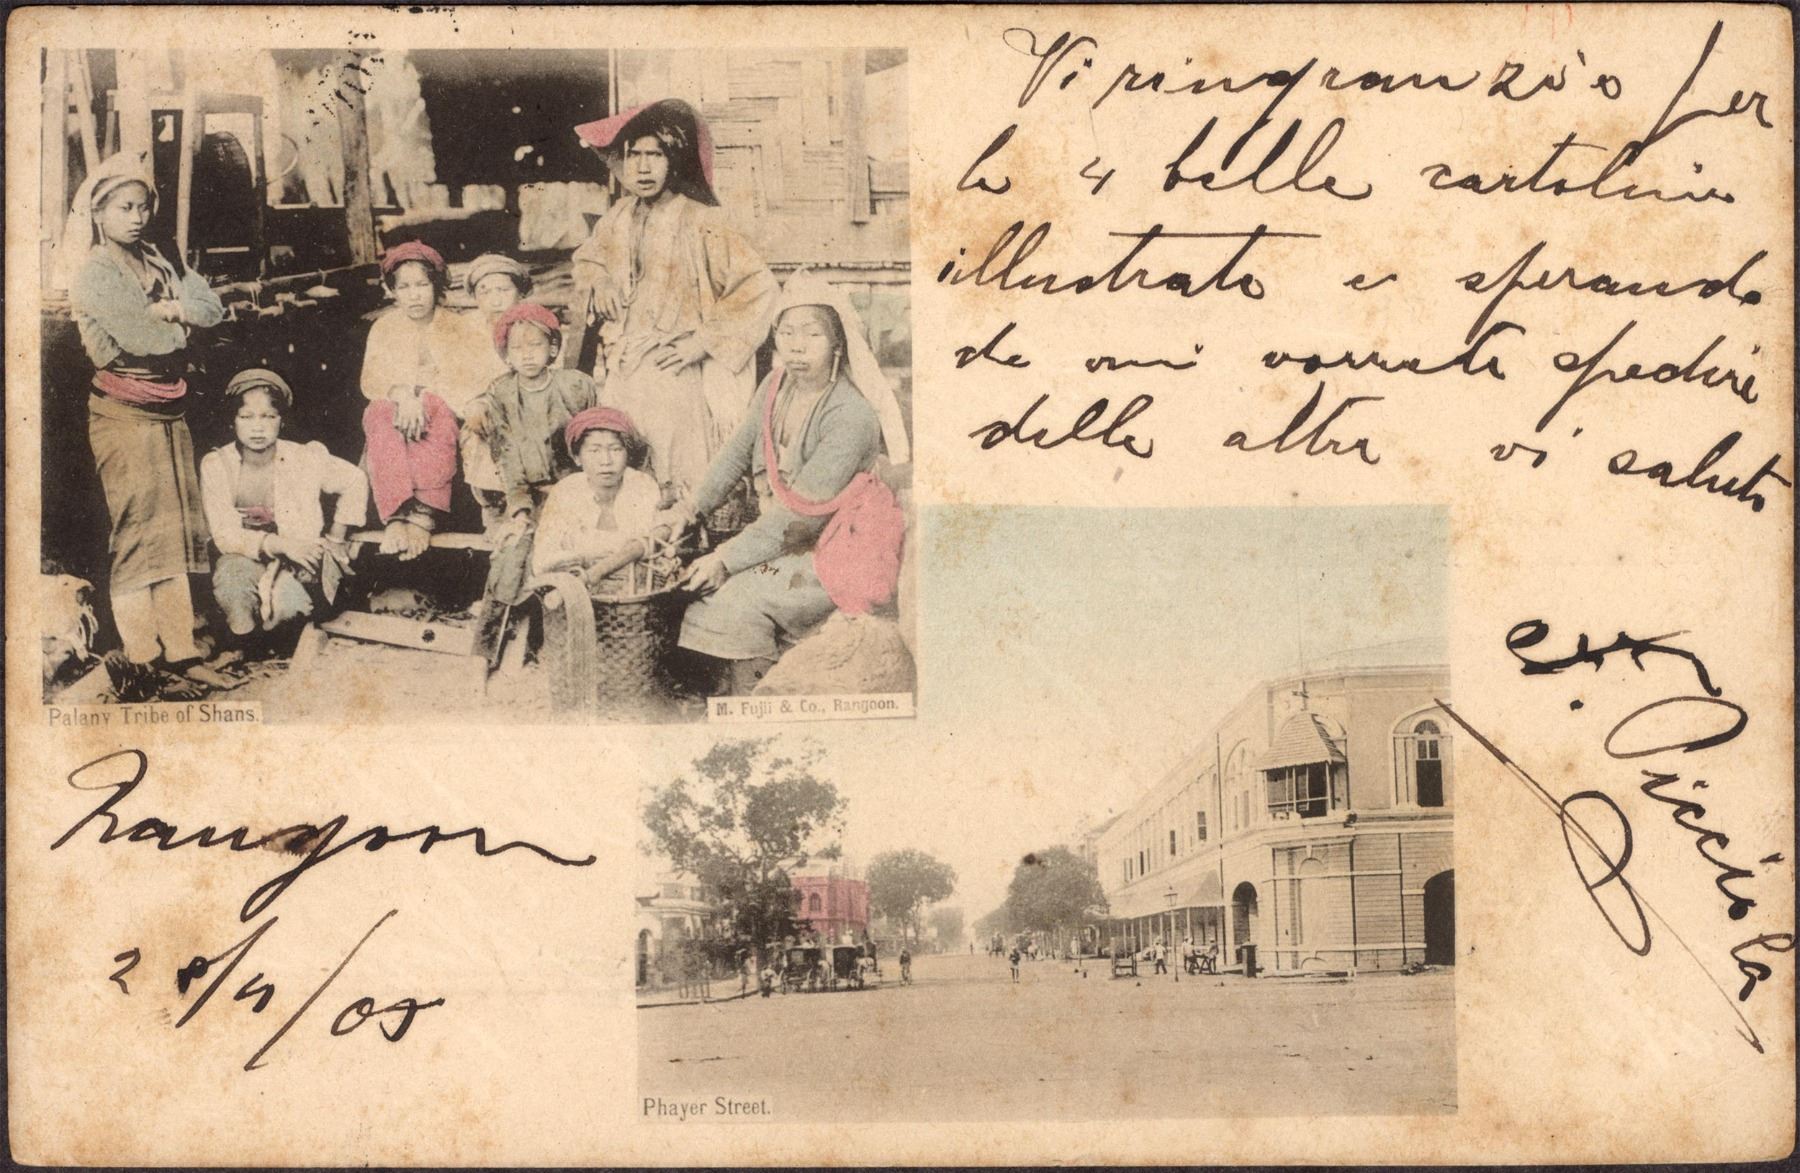 Vi ringranzio per
le 4 belle cartoline
illustrate e sperando
de mi vorrete spedire
delle altre vi saluto
F. Picciola
Palany Tribe of Shans.
M. Fujii & Co., Rangoon.
Rangoon
2 8/4/05
Phayer Street.